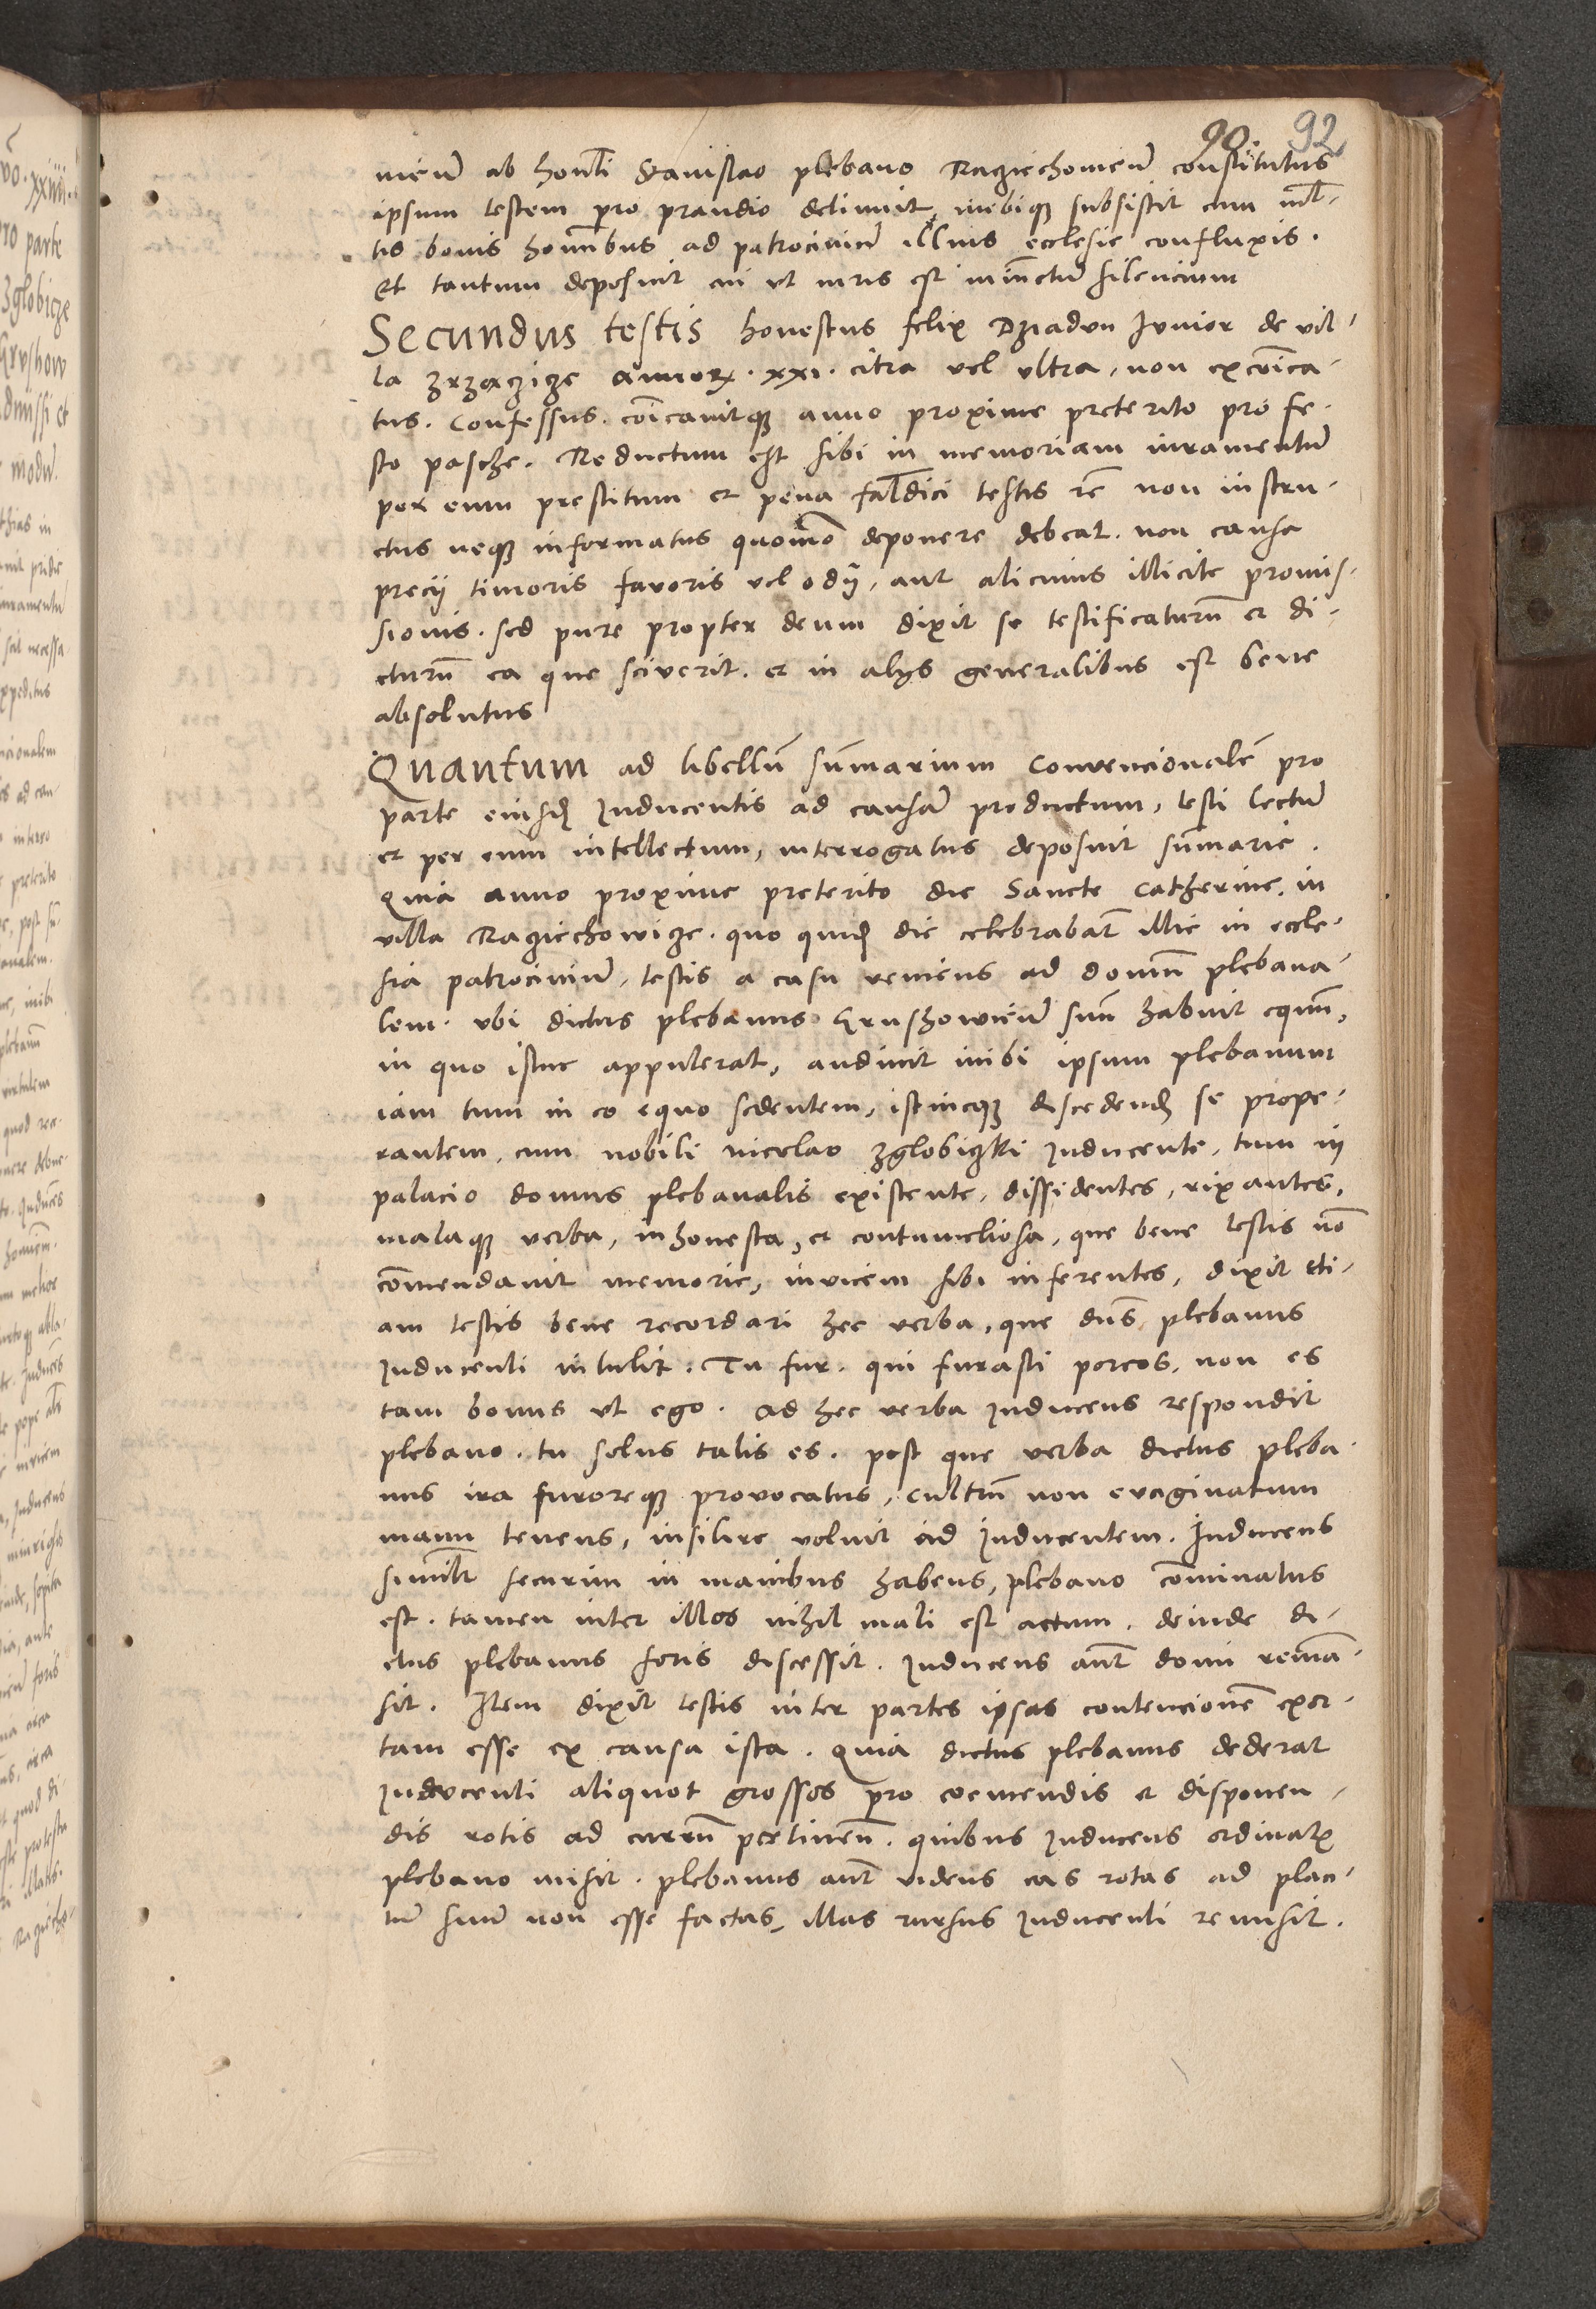 90. 92
vieñ ab honli Stanislao plebano Raziechovieñ constitutus
ipsum testem pro prandio detinuit, inibique subsistit cum mul-
tis bonis hominibus ad patrociniũ illius ecclesie confluxis.
Et tantum deposuit cui ut iuris est iniũctũ silencium
Secundus testis honestus felix Dziadon Iunior de vil-
la Zrzączicze annorum. xxi. citra vel ultra, non excõica-
tus. Confessus. cõicavitque anno proxime preterito pro fe-
sto pasche. Reductum est sibi in memoriam iuramentũ
per eum prestitum et pena falsidici testis re non instru-
ctus neque informatus quomõ deponere debeat. non causa
precii timoris favoris vel odij, aut alicuius illicite promis-
sionis. sed pure propter deum dixit se testificaturũ et di-
cturũ ea que sciverit. et in alijs generalibus est bene
absolutus
Quantum ad libellũ sũmarium Convencionalẽ pro
parte eiusdem Inducentis ad causã productum, testi lectũ
et per eum intellectum, interrogatus deposuit sũmarie.
Quia anno proxime preterito die Sancte Catherine. in
villa Raziechowicze. quo quidem die celebrabat illic in eccle-
sia patrociniũ, testis a casu veniens ad domũ plebana-
lem. ubi dictus plebanus Gruszowieñ suũ habuit equũ,
in quo istuc appulerat, audivit inibi ipsum plebanum
iam tum in eo equo sedentem, istincque discedendum se prope-
rantem, cum nobili nicolao Zglobiczki Inducente, tum in
palacio domus plebanalis existente, dissidentes, rixantes,
malaque verba, inhonesta, et contumeliosa, que bene testis nõ
cõmendavit memorie, invicem sibi inferentes, dixit eti-
am testis bene recordari hec verba, que dñs plebanus
Inducenti intulit. Tu fur. qui furasti porcos, non es
tam bonus ut ego. Ad hec verba Inducens respondit
plebano. tu solus talis es. post que verba dictus pleba-
nus ira furoreque provocatus, cultrũ non evaginatum
manu tenens, insilire voluit ad Inducentem. Inducens
similr securim in manibus habens, plebano cõminatus
est. tamen inter illos nihil mali est actum. deinde di-
ctus plebanus foris discessit. Inducens aũt domi remã-
sit. Item dixit testis inter partes ipsas contencionẽ exor-
tam esse ex causa ista. Quia dictus plebanus dederat
Inducenti aliquot grossos pro coemendis et disponen-
dis rotis ad currũ pertineñ. quibus Inducens ordinatis
plebano misit. plebanus aũt videns eas rotas ad placi-
tũ suũ non esse factas, illas rursus Inducenti remisit.